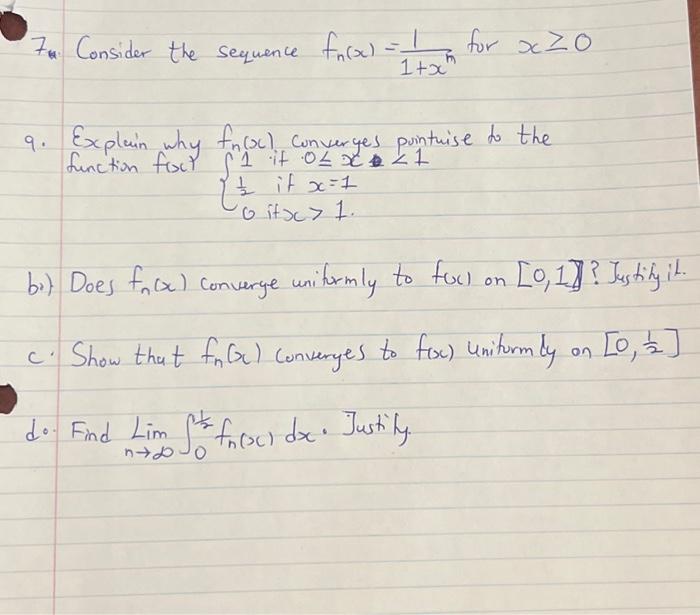 7. Consider the sequence fₙ(x) = 1/(1+xⁿ) for x ≥ 0
a. Explain why fₙ(x) converges pointwise to the
function f(x) { 1 if 0 ≤ x < 1
{ 1/2 if x = 1
{ 0 if x > 1.
b.) Does fₙ(x) converge uniformly to f(x) on [0,1]? Justify it.
c. Show that fₙ(x) converges to f(x) uniformly on [0, 1/2]
d. Find Lim n→∞ ∫₀^(1/2) fₙ(x) dx. Justify.